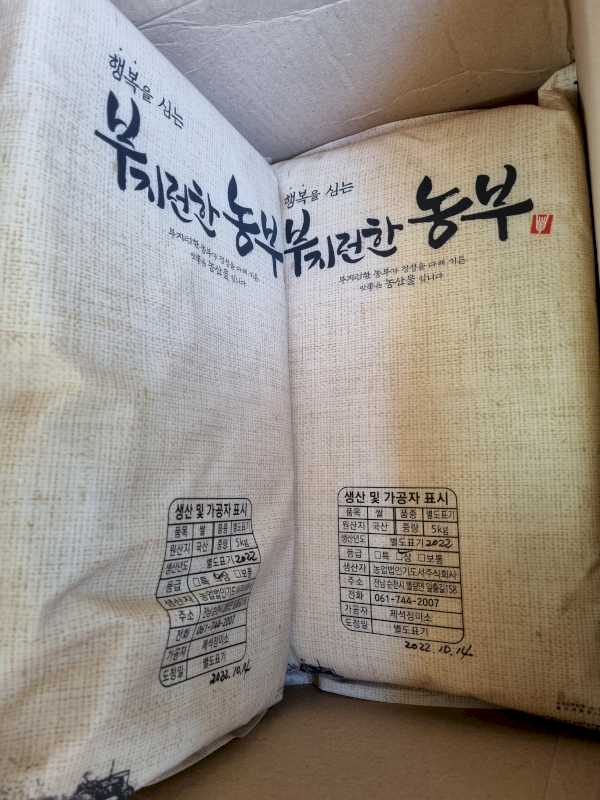 행복을 심는
부지런한 농부
부지런한 농부가 정성을 다해 기른
농산물 입니다
생산 및 가공자 표시
품목 쌀 품종 별도표기
원산지 국산 중량 5kg
생산년도 별도표기 2022
등급 □특 □상 □보통
생산자 농업법인기도서주식회사
주소
전화 061-744-2007
가공자 제석정미소
도정일 별도표기
2022.10.14
행복을 심는
부지런한 농부
부지런한 농부가 정성을 다해 기른
농산물 입니다
생산 및 가공자 표시
품목 쌀 품종 별도표기
원산지 국산 중량 5kg
생산년도 별도표기 2022
등급 □특 □상 □보통
생산자 농업법인기도서주식회사
주소 전남 순천시 별량면 일출길158
전화 061-744-2007
가공자 제석정미소
도정일 별도표기
2022.10.14